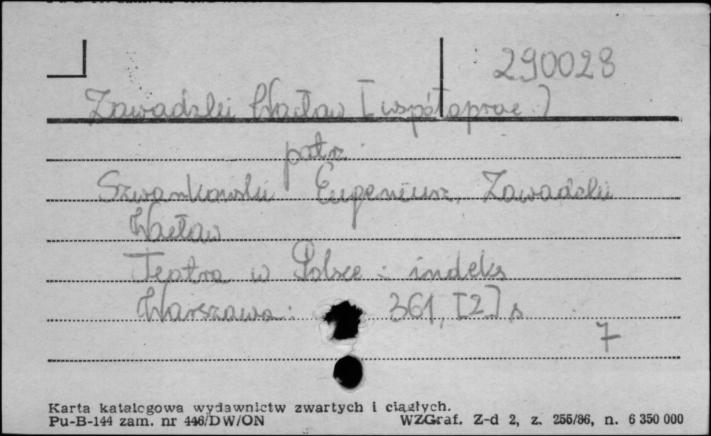 290028
Zawadzki Wacław [współoprac.]
patrz
Szwankowski Eugeniusz, Zawadzki
Wacław
Teatra w Polsce : indeks
Warszawa : 361, [2] s
7
Karta katalogowa wydawnictw zwartych i ciągłych.
Pu-B-144 zam. nr 446/DW/ON WZGraf. Z-d 2, z. 255/86, n. 6 350 000